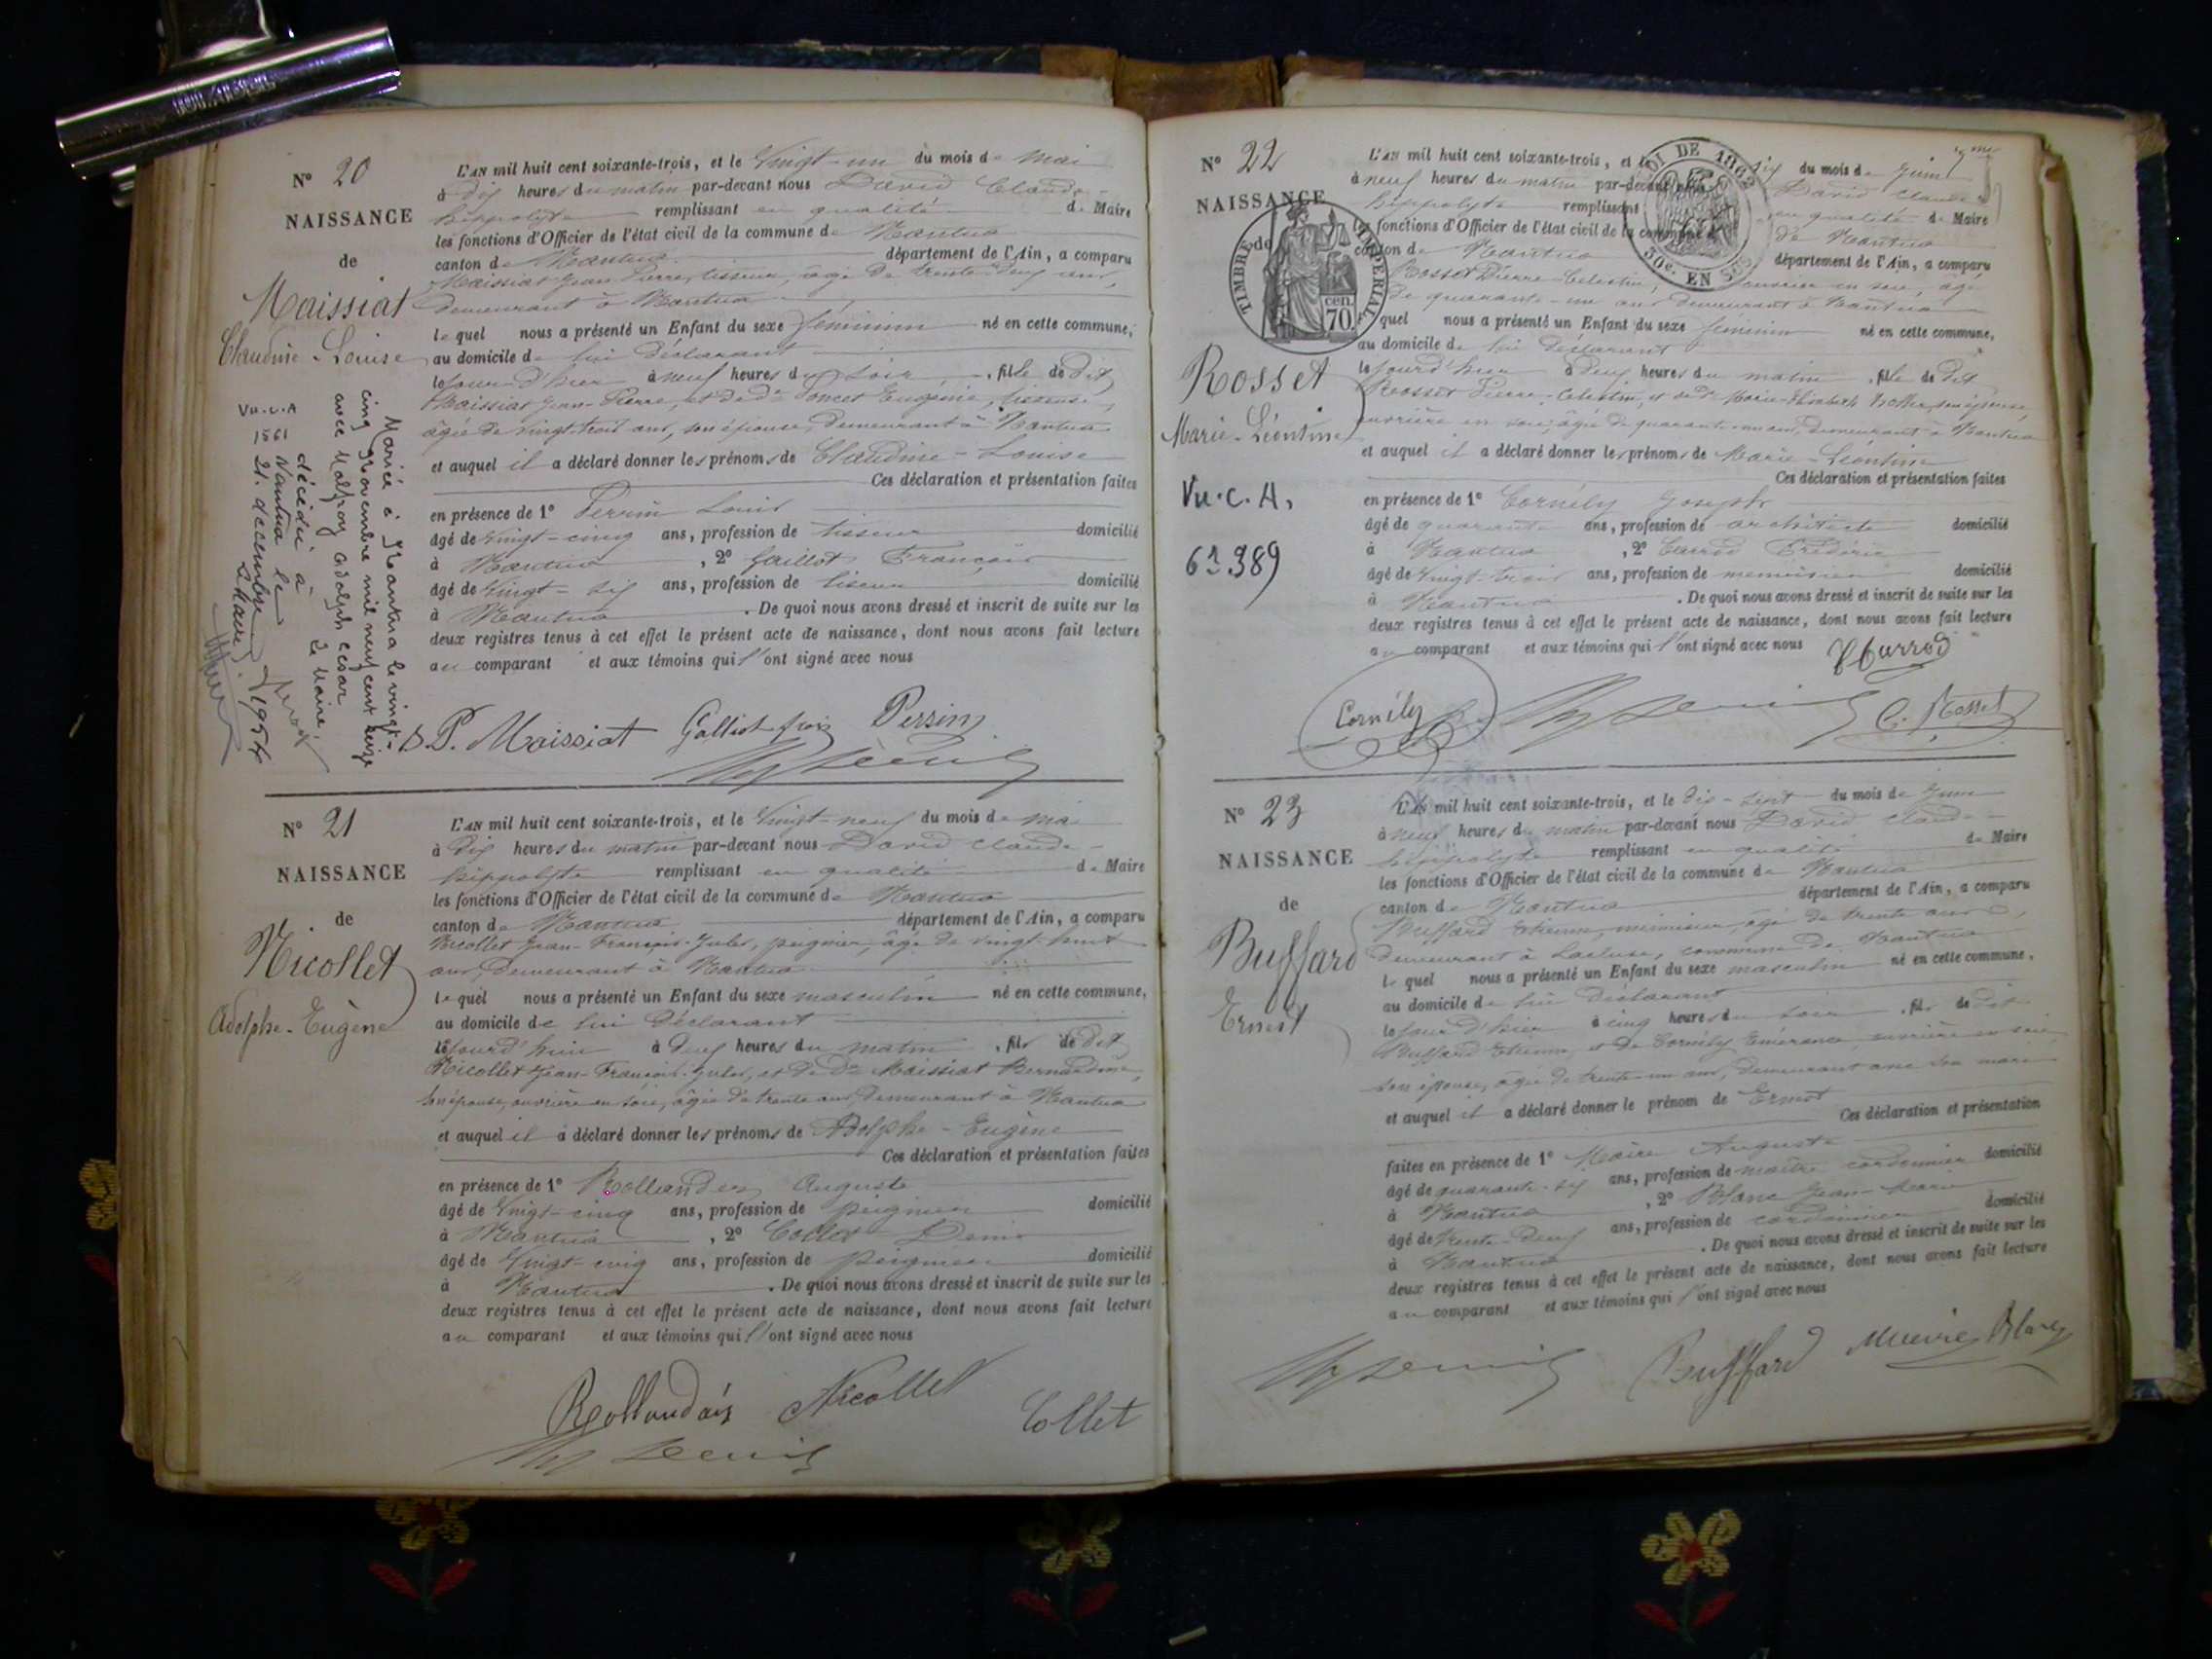 N° 20
NAISSANCE
de
Maissiat
Claudine-Louise
Vu.c.A
1561
Mariée à Nantua le vingt-
cinq Novembre mil neuf cent seize
avec Malfroy Adolph César
Le Maire,
décédée à
Nantua le
21 décembre 1954
Le Maire
L'AN mil huit cent soixante-trois, et le Vingt-un du mois de Mai
à dix heures du matin par-devant nous David Claude-
hippolyte remplissant en qualité de Maire
les fonctions d'Officier de l'état civil de la commune de Nantua
canton de Nantua département de l'Ain, a comparu
Maissiat Jean-Pierre, tisseur, âgé de trente-deux ans,
demeurant à Nantua
lequel nous a présenté un Enfant du sexe féminin né en cette commune,
au domicile de lui déclarant
le jour d'hier à neuf heures du soir, fille de dit
Maissiat Jean-Pierre, et de De Poncet Eugénie, tisseuse,
âgée de vingt-trois ans, son épouse, demeurant à Nantua
et auquel il a déclaré donner les prénoms de Claudine-Louise
Ces déclaration et présentation faites
en présence de 1° Perrin Louis
âgé de vingt-cinq ans, profession de tisseur domicilié
à Nantua, 2° Gaillot François
âgé de vingt-six ans, profession de tisseur domicilié
à Nantua. De quoi nous avons dressé et inscrit de suite sur les
deux registres tenus à cet effet le présent acte de naissance, dont nous avons fait lecture
au comparant et aux témoins qui l'ont signé avec nous
J.P. Maissiat Galliot frois Perrin
N° 21
NAISSANCE
de
Nicollet
Adolphe-Eugène
L'AN mil huit cent soixante-trois, et le Vingt-neuf du mois de mai
à dix heures du matin par-devant nous David Claude-
hippolyte remplissant en qualité de Maire
les fonctions d'Officier de l'état civil de la commune de Nantua
canton de Nantua département de l'Ain, a comparu
Nicollet Jean-François-Jules, peignier, âgé de vingt-huit
ans, demeurant à Nantua
lequel nous a présenté un Enfant du sexe masculin né en cette commune,
au domicile de lui déclarant
le jourd'hui à deux heures du matin, fils de dit
Nicollet Jean-François-Jules, et de De Maissiat Bernardine,
son épouse, ouvrière en soie, âgée de trente ans, demeurant à Nantua
et auquel il a déclaré donner les prénoms de Adolphe-Eugène
Ces déclaration et présentation faites
en présence de 1° Rollandez Auguste
âgé de vingt-cinq ans, profession de peignier domicilié
à Nantua, 2° Collet Denis
âgé de vingt-cinq ans, profession de peignier domicilié
à Nantua. De quoi nous avons dressé et inscrit de suite sur les
deux registres tenus à cet effet le présent acte de naissance, dont nous avons fait lecture
au comparant et aux témoins qui l'ont signé avec nous
Nicollet Collet
N° 22
NAISSANCE
de
TIMBRE IMPERIAL
cen.
70.
Rosset
Marie-Léontine
Vu.c.A.
LOI DE 1862
L'AN mil huit cent soixante-trois, et le dix du mois de Juin
à neuf heures du matin par-devant nous David Claude
hippolyte remplissant en qualité de Maire
les fonctions d'Officier de l'état civil de la commune de Nantua
canton de Nantua département de l'Ain, a comparu
Rosset Pierre Célestin, ouvrier en soie, âgé
de quarante-un ans demeurant à Nantua
lequel nous a présenté un Enfant du sexe féminin né en cette commune,
au domicile de lui déclarant
le jourd'hier à deux heures du matin, fille de dit
Rosset Pierre-Célestin, et de De Marie-Elisabeth son épouse,
ouvrière en soie, âgée de quarante-un ans, demeurant à Nantua
et auquel il a déclaré donner les prénoms de Marie-Léontine
Ces déclaration et présentation faites
en présence de 1° Cornély Joseph
âgé de quarante ans, profession de architecte domicilié
à Nantua, 2° Frédéric
âgé de vingt-trois ans, profession de menuisier domicilié
à Nantua. De quoi nous avons dressé et inscrit de suite sur les
deux registres tenus à cet effet le présent acte de naissance, dont nous avons fait lecture
au comparant et aux témoins qui l'ont signé avec nous
Cornély C. Rosset
N° 23
NAISSANCE
de
Buffard
Ernest
L'AN mil huit cent soixante-trois, et le dix-sept du mois de Juin
à neuf heures du matin par-devant nous David Claude-
hippolyte remplissant en qualité de Maire
les fonctions d'Officier de l'état civil de la commune de Nantua
canton de Nantua département de l'Ain, a comparu
Buffard Etienne, menuisier, âgé de trente ans,
demeurant à Lacluse, commune de Nantua
lequel nous a présenté un Enfant du sexe masculin né en cette commune,
au domicile de lui déclarant
le jour d'hier à cinq heures du soir, fils de dit
Buffard Etienne, et de Cornély Emérance, ouvrière en soie,
son épouse, âgée de trente-un ans, demeurant avec son mari
et auquel il a déclaré donner le prénom de Ernest
Ces déclaration et présentation
faites en présence de 1° Maire Auguste
âgé de quarante-six ans, profession de maître cordonnier domicilié
à Nantua, 2° Blanc Jean-Marie
âgé de trente-deux ans, profession de cordonnier domicilié
à Nantua. De quoi nous avons dressé et inscrit de suite sur les
deux registres tenus à cet effet le présent acte de naissance, dont nous avons fait lecture
au comparant et aux témoins qui l'ont signé avec nous
Buffard Blanc